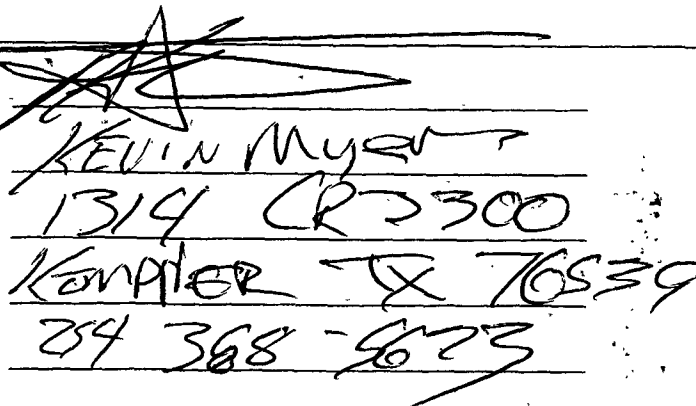 KEVIN Myers
1314 CR 2300
KempNER TX 76539
254 368-5623